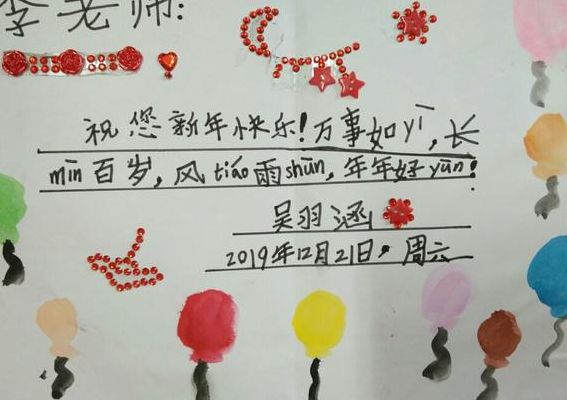 李老师:
祝您新年快乐!万事如yī,长
mìn百岁,风tiáo雨shūn,年年好yūn!
吴羽涵
2019年12月21日,周六